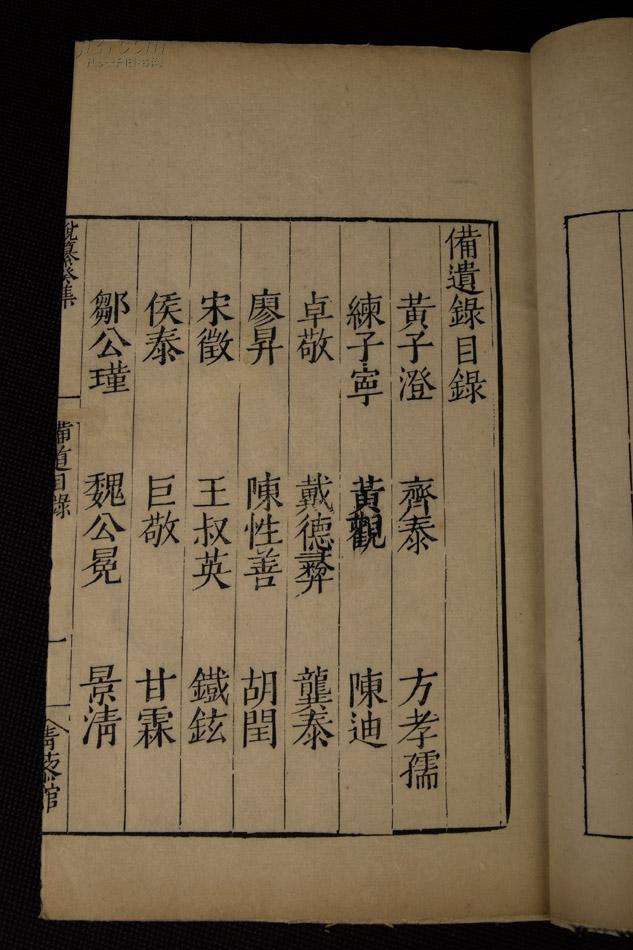 備遺錄目錄
黃子澄 齊泰 方孝孺
練子寧 黃觀 陳迪
卓敬 戴德彝 龔泰
廖昇 陳性善 胡閏
宋徵 王叔英 鐵鉉
侯泰 巨敬 甘霖
鄒公瑾 魏公冕 景清
備遺目錄 一